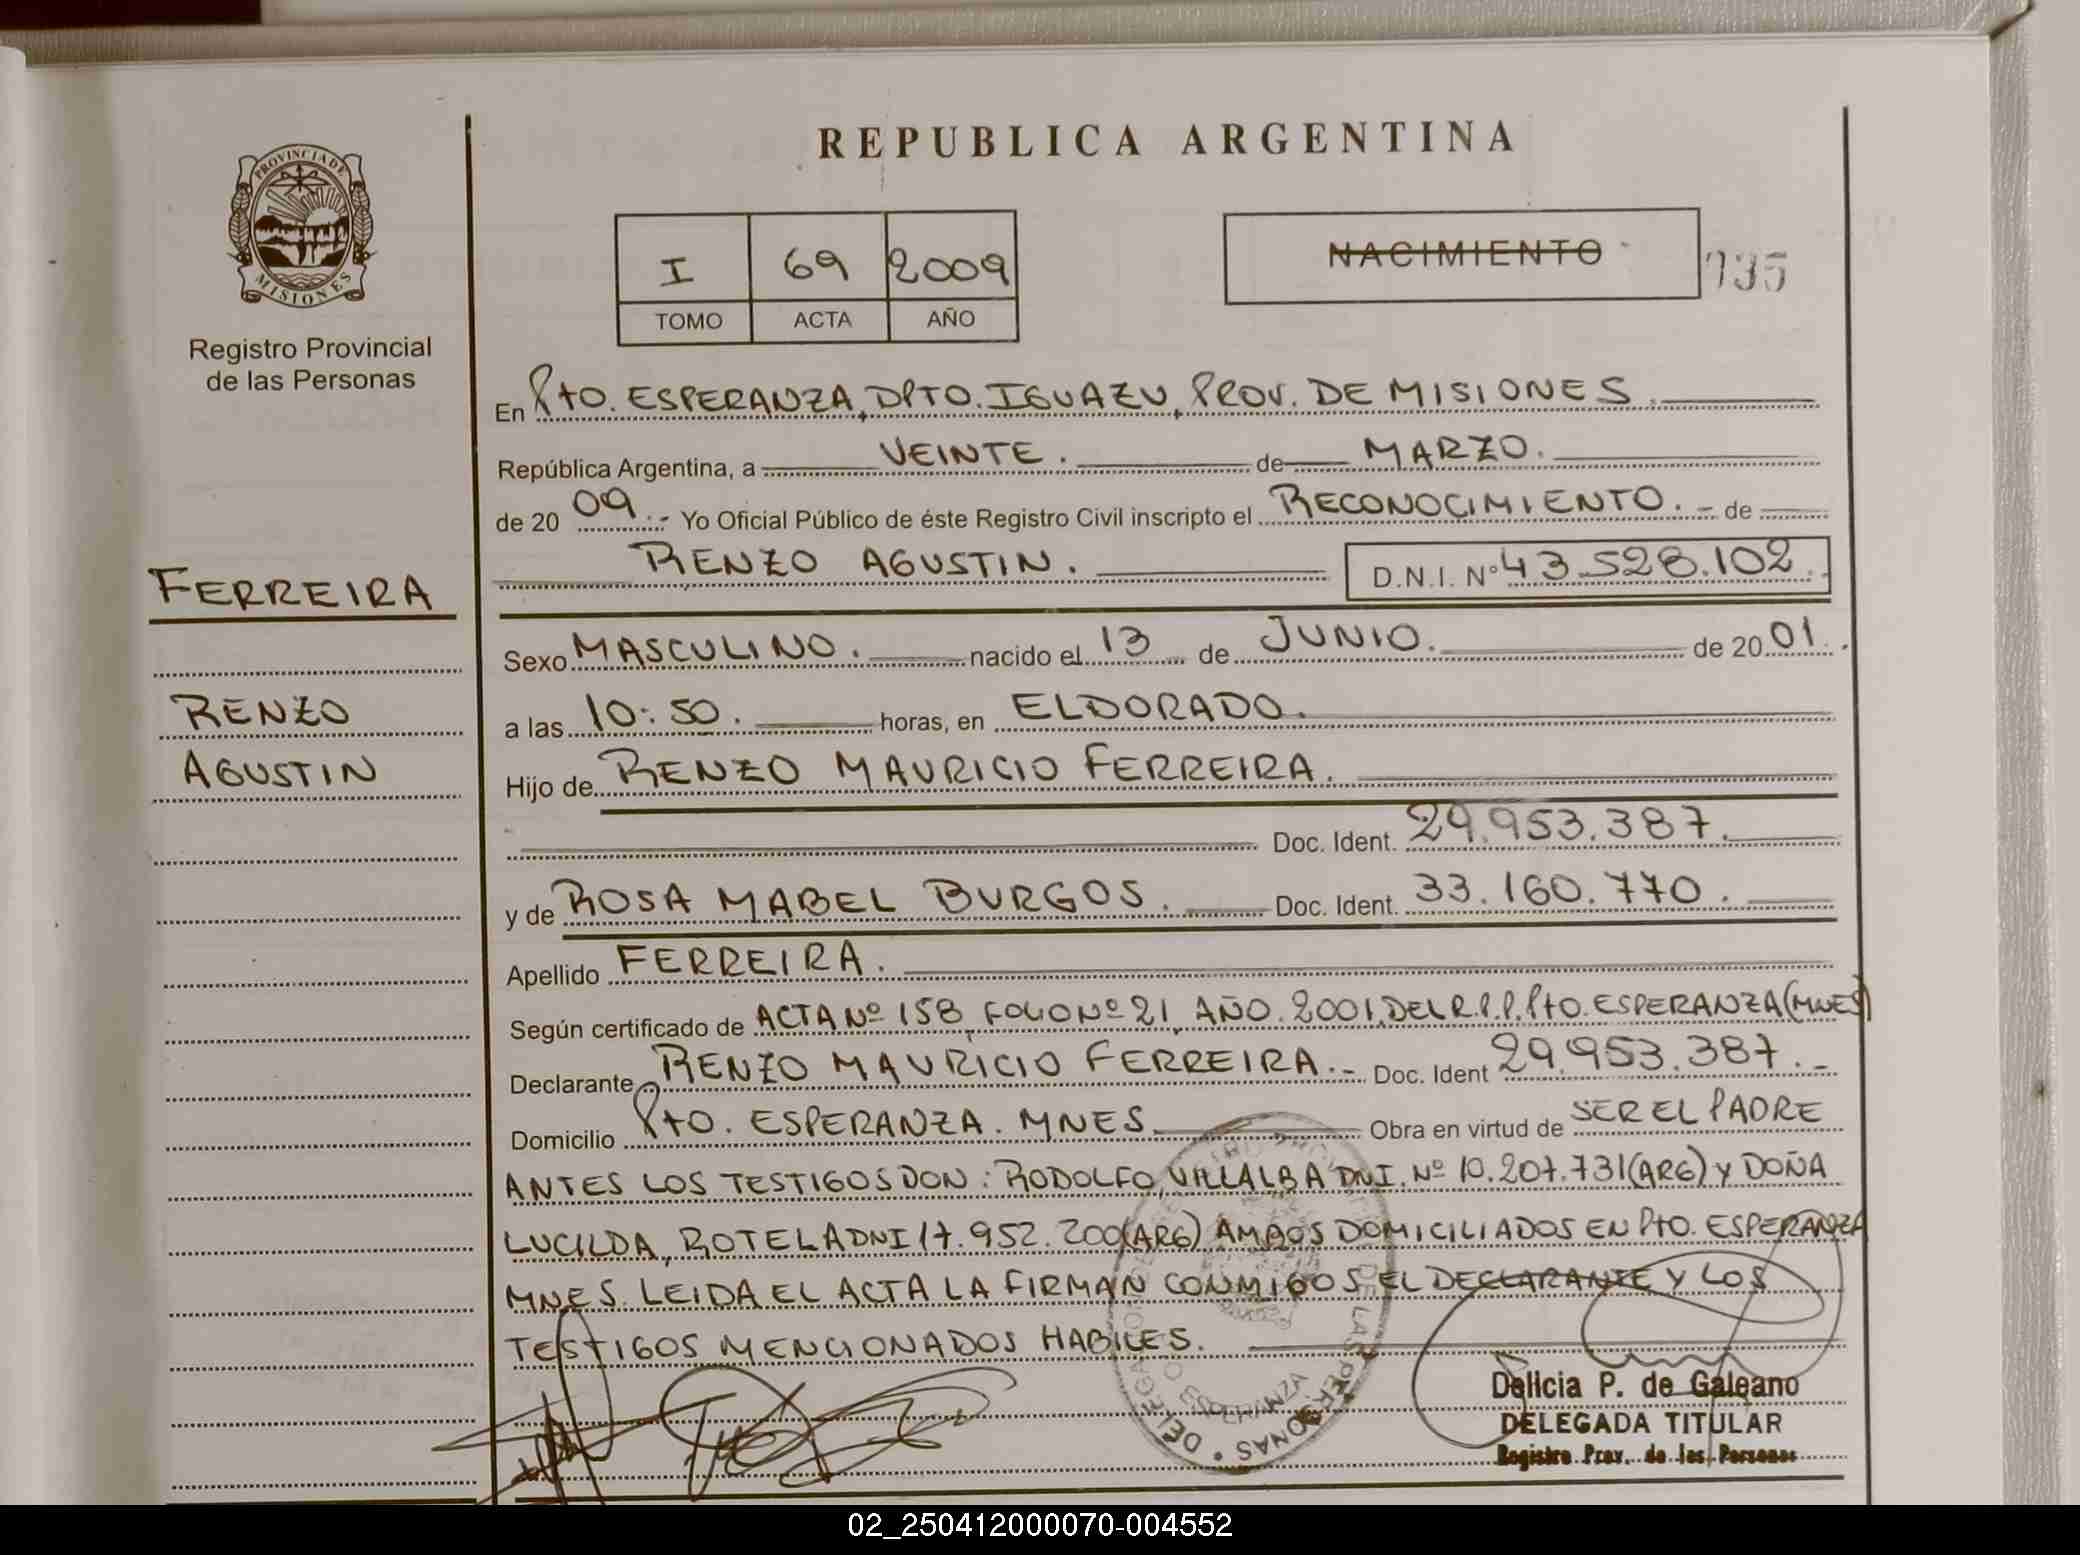 REPUBLICA ARGENTINA
PROVINCIA DE
MISIONES
Registro Provincial
de las Personas
I 69 2009
TOMO ACTA AÑO
NACIMIENTO
135
En Pto. ESPERANZA, DPTO. IGUAZU, PROV. DE MISIONES.
República Argentina, a VEINTE. de MARZO.
de 20 09.- Yo Oficial Público de éste Registro Civil inscripto el RECONOCIMIENTO.- de
RENZO AGUSTIN. D.N.I. Nº 43.528.102.
FERREIRA
RENZO
AGUSTIN
Sexo MASCULINO. nacido el 13 de JUNIO. de 20 01.
a las 10:50. horas, en ELDORADO.
Hijo de RENZO MAURICIO FERREIRA.
Doc. Ident. 29.953.387.
y de ROSA MABEL BURGOS. Doc. Ident. 33.160.770.
Apellido FERREIRA.
Según certificado de ACTA Nº 158, FOLIO Nº 21, AÑO. 2001, DEL R.P.P. Pto. ESPERANZA (MNES)
Declarante RENZO MAURICIO FERREIRA.- Doc. Ident 29.953.387.-
Domicilio Pto. ESPERANZA. MNES. Obra en virtud de SER EL PADRE
ANTES LOS TESTIGOS DON: RODOLFO, VILLALBA DNI. Nº 10.207.731 (ARG) Y DOÑA
LUCILDA, ROTELA DNI 17.952.200 (ARG) AMBOS DOMICILIADOS EN Pto. ESPERANZA
MNES. LEIDA EL ACTA LA FIRMAN CONMIGOS EL DECLARANTE Y LOS
TESTIGOS MENCIONADOS HABILES.
DE LAS PERSONAS
Delicia P. de Galeano
DELEGADA TITULAR
Registro Prov. de las Personas
02_250412000070-004552